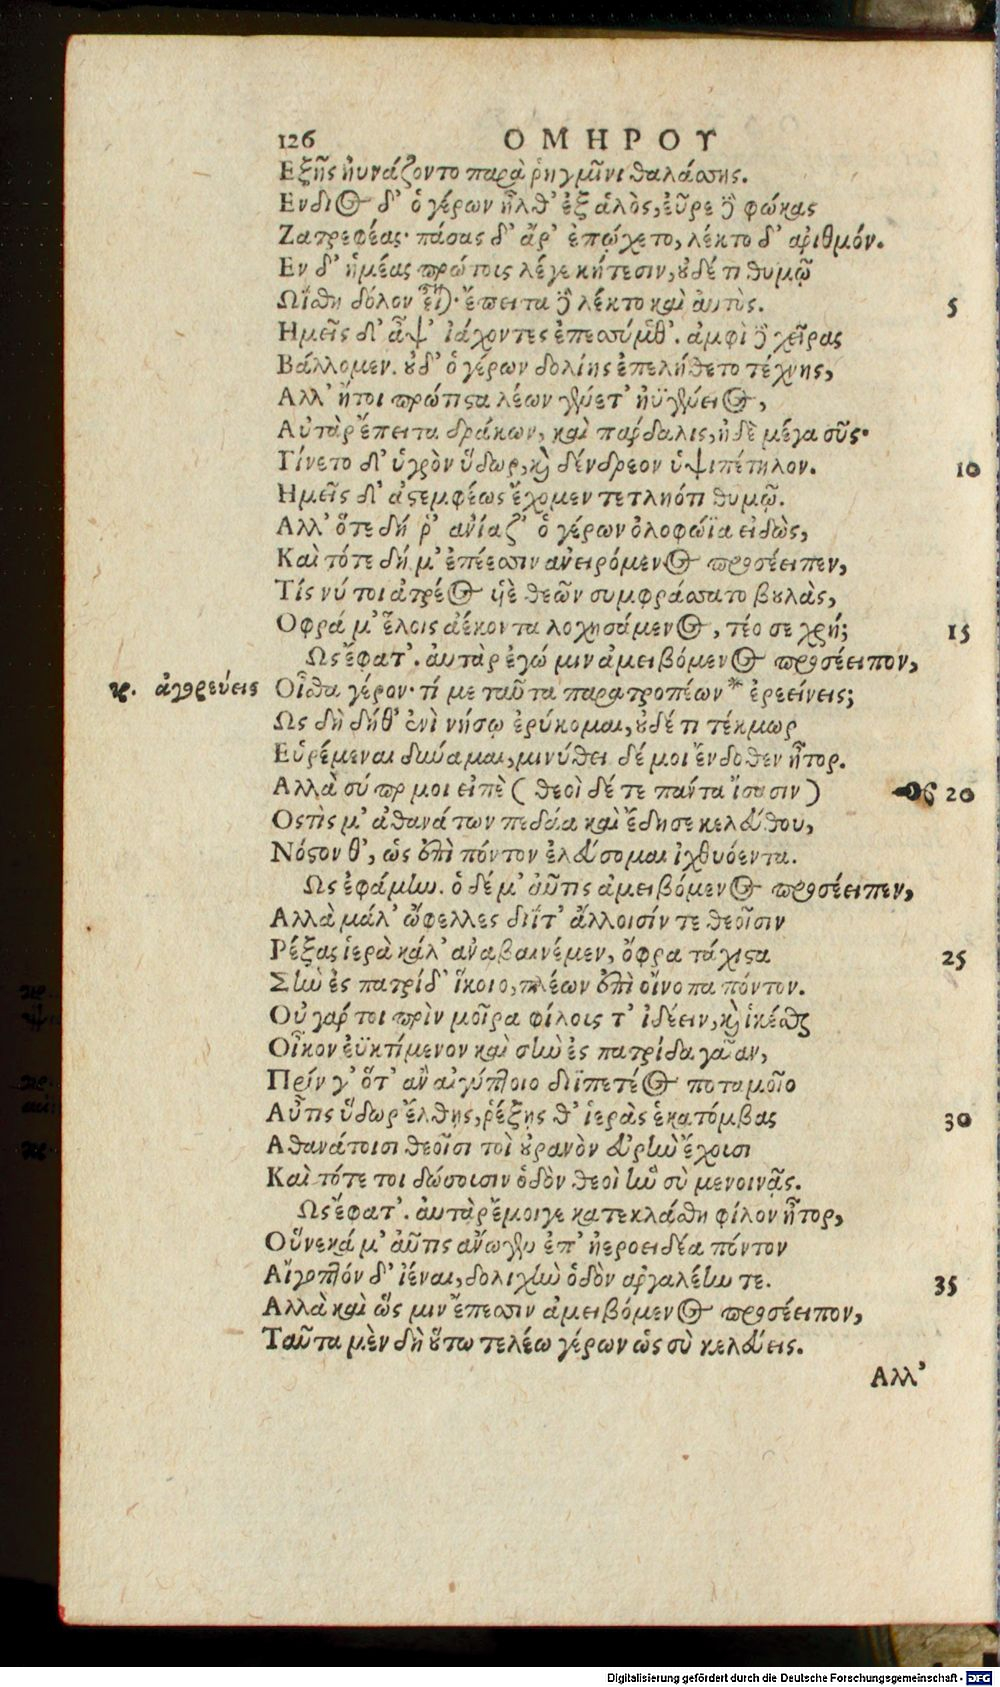 126 ΟΜΗΡΟΥ
Εξῆς ηὐνάζοντο παρὰ ῥηγμῖνι θαλάσσης.
Ενδιος δ' ὁ γέρων ἦλθ' ἐξ ἁλὸς, εὗρε δὲ φώκας
Ζατρεφέας· πάσας δ' ἄρ' ἐπώχετο, λέκτο δ' ἀριθμόν.
Εν δ' ἡμέας πρώτοις λέγε κήτεσιν, οὐδέ τι θυμῷ
Ωΐσθη δόλον εἶναι· ἔπειτα δὲ λέκτο καὶ αὐτὸς. 5
Ημεῖς δ' ἂψ' ἰάχοντες ἐπεσσύμεθ'. ἀμφὶ δὲ χεῖρας
Βάλλομεν. οὐδ' ὁ γέρων δολίης ἐπελήθετο τέχνης,
Αλλ' ἤτοι πρώτιστα λέων γένετ' ἠϋγένειος,
Αὐτὰρ ἔπειτα δράκων, καὶ πάρδαλις, ἠδὲ μέγα σῦς·
Γίνετο δ' ὑγρὸν ὕδωρ, καὶ δένδρεον ὑψιπέτηλον. 10
Ημεῖς δ' ἀστεμφέως ἔχομεν τετληότι θυμῷ.
Αλλ' ὅτε δή ῥ' ἀνίαζ' ὁ γέρων ὀλοφώϊα εἰδὼς,
Καὶ τότε δή μ' ἐπέεσσιν ἀνειρόμενος προσέειπεν,
Τίς νύ τοι ἀτρέος υἱὲ θεῶν συμφράσσατο βουλὰς,
Οφρά μ' ἕλοις ἀέκοντα λοχησάμενος, τέο σε χρή; 15
Ως ἔφατ'. αὐτὰρ ἐγώ μιν ἀμειβόμενος προσέειπον,
γρ. ἀγορεύεις Οἶσθα γέρον· τί με ταῦτα παρατροπέων * ἐρεείνεις;
Ως δὴ δήθ' ἐνὶ νήσῳ ἐρύκομαι, οὐδέ τι τέκμωρ
Εὑρέμεναι δύναμαι, μινύθει δέ μοι ἔνδοθεν ἦτορ.
Αλλὰ σύ πέρ μοι εἰπὲ ( θεοὶ δέ τε πάντα ἴσασιν ) 20
Οστις μ' ἀθανάτων πεδάα καὶ ἔδησε κελεύθου,
Νόστον θ', ὡς ἐπὶ πόντον ἐλεύσομαι ἰχθυόεντα.
Ως ἐφάμην. ὁ δέ μ' αὖτις ἀμειβόμενος προσέειπεν,
Αλλὰ μάλ' ὤφελλες διΐ τ' ἄλλοισίν τε θεοῖσιν
Ρέξας ἱερὰ κάλ' ἀναβαινέμεν, ὄφρα τάχιστα 25
Σὴν ἐς πατρίδ' ἵκοιο, πλέων ἐπὶ οἴνοπα πόντον.
Οὐ γάρ τοι πρὶν μοῖρα φίλοις τ' ἰδέειν, καὶ ἱκέσθαι
Οἶκον ἐϋκτίμενον καὶ σὴν ἐς πατρίδα γαῖαν,
Πρίν γ' ὅτ' ἂν αἰγύπτοιο διϊπετέος ποταμοῖο
Αὖτις ὕδωρ ἔλθῃς, ῥέξῃς θ' ἱερὰς ἑκατόμβας 30
Αθανάτοισι θεοῖσι τοὶ οὐρανὸν εὐρὺν ἔχουσι
Καὶ τότε τοι δώσουσιν ὁδὸν θεοὶ ἣν σὺ μενοινᾷς.
Ως ἔφατ'. αὐτὰρ ἔμοιγε κατεκλάσθη φίλον ἦτορ,
Οὕνεκά μ' αὖτις ἄνωγεν ἐπ' ἠεροειδέα πόντον
Αἴγυπτόν δ' ἰέναι, δολιχὴν ὁδὸν ἀργαλέην τε. 35
Αλλὰ καὶ ὥς μιν ἔπεσσιν ἀμειβόμενος προσέειπον,
Ταῦτα μὲν δὴ οὕτω τελέω γέρων ὡς σὺ κελεύεις.
Αλλ'
Digitalisierung gefördert durch die Deutsche Forschungsgemeinschaft - DFG